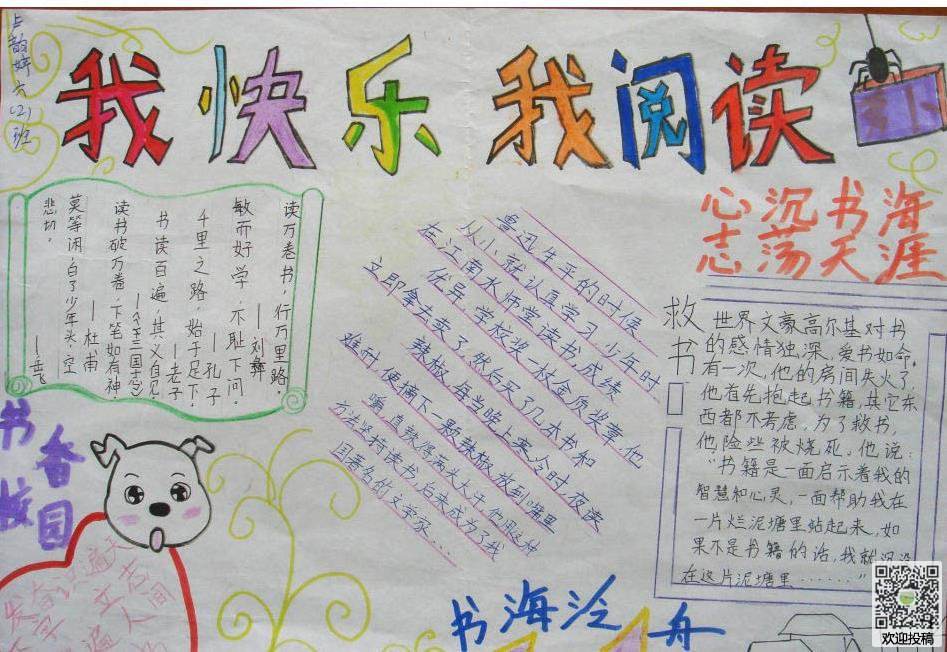 六(2)班
我快乐 我阅读
读万卷书，行万里路。
——刘彝
敏而好学，不耻下问。
——孔子
千里之路，始于足下。
——老子
书读百遍，其义自见
——《三国志》
读书破万卷，下笔如有神
——杜甫
莫等闲，白了少年头，空
悲切。
——岳飞
鲁迅生平的时候
从小就认真学习，少年时
在江南水师堂读书，成绩
优异，学校奖一枚金质奖章，他
立即拿去卖了，然后买了几本书和
辣椒，每当晚上寒冷时，夜读
难耐，便摘下一颗辣椒，放到嘴里
嚼，直辣得满头大汗，他用这种
方法坚持读书，后来成为了我
国著名的文学家...
心沉书海
志荡天涯
救书
世界文豪高尔基对书
的感情独深，爱书如命，
有一次，他的房间失火了，
他有先抱起书籍，其它东
西都不考虑，为了救书，
他险些被烧死，他说：
“书籍是一面启示着我的
智慧和心灵，一面帮助我在
一片烂泥塘里站起来，如
果不是书籍的话，我就沉没
在这片泥塘里……”
书香
校园
书海泠舟
欢迎投稿